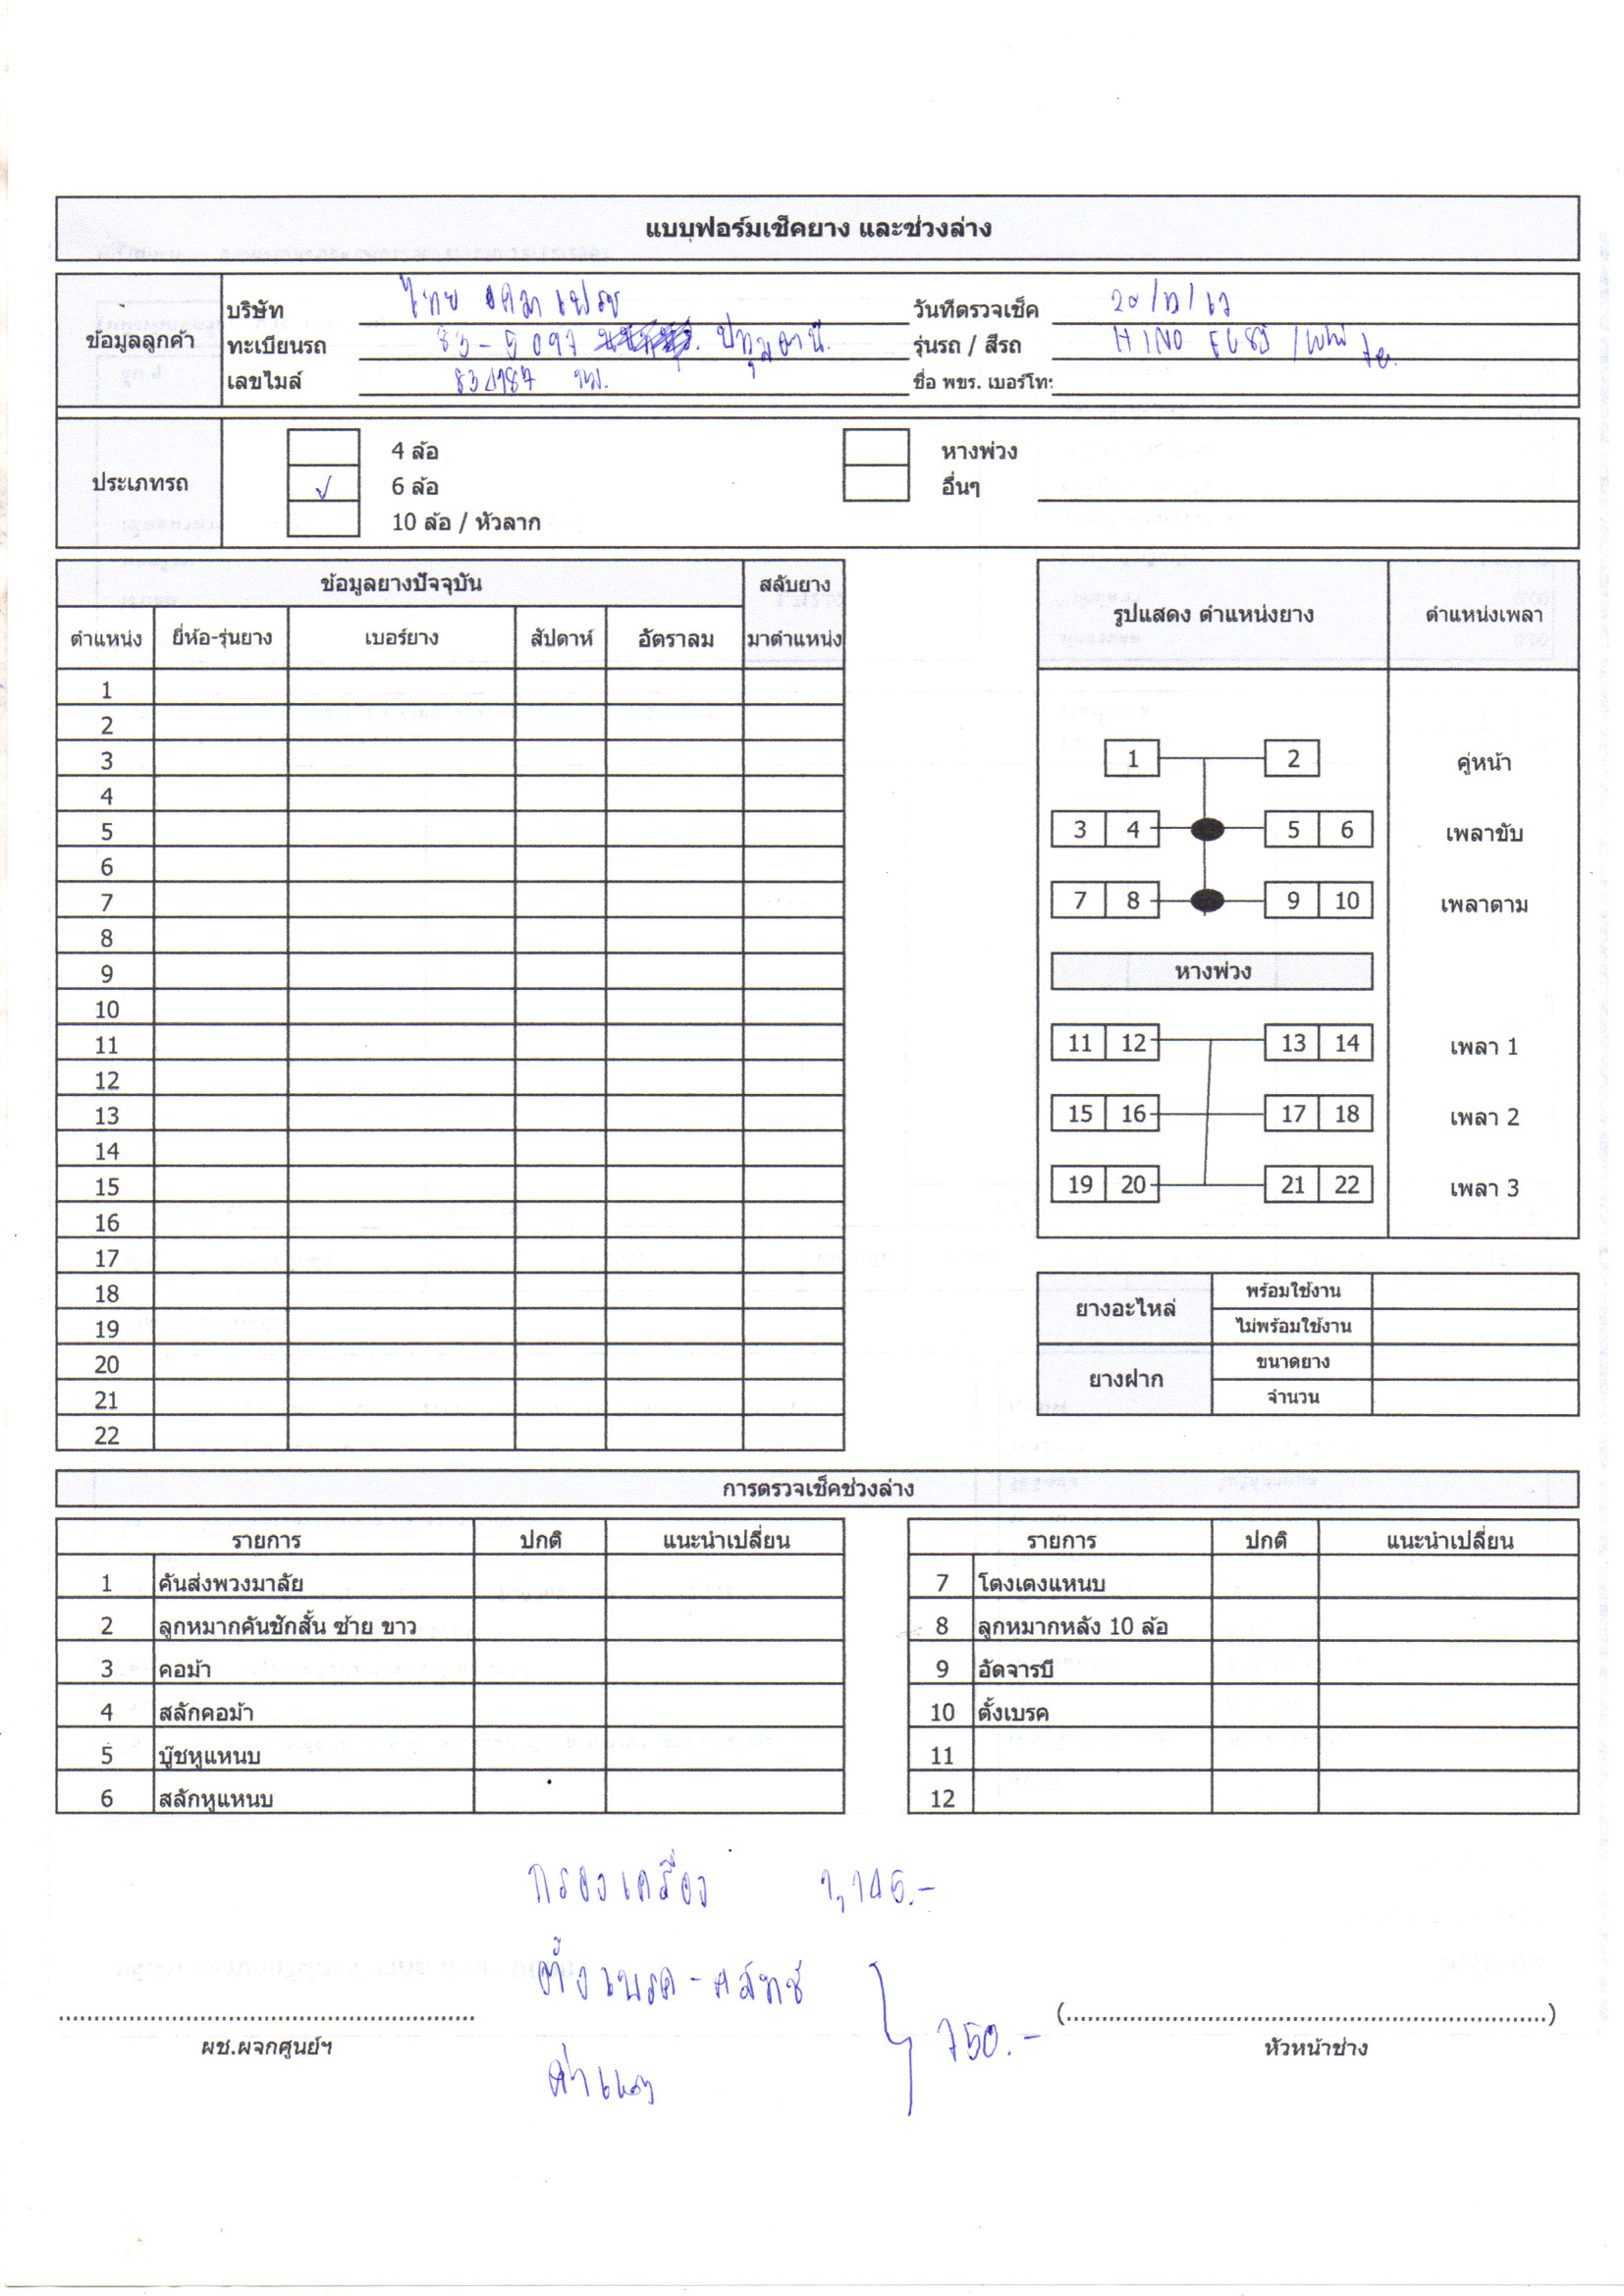 แบบฟอร์มเช็คยาง และช่วงล่าง
ข้อมูลลูกค้า
บริษัท ไทย
วันที่ตรวจเช็ค
ทะเบียนรถ 83-5097 ปทุมธานี.
รุ่นรถ / สีรถ HINO /white.
เลขไมล์
ชื่อ พขร. เบอร์โทร
ประเภทรถ
4 ล้อ
หางพ่วง
✓ 6 ล้อ
อื่นๆ
10 ล้อ / หัวลาก
ข้อมูลยางปัจจุบัน สลับยาง
ตำแหน่ง ยี่ห้อ-รุ่นยาง เบอร์ยาง สัปดาห์ อัตราลม มาตำแหน่ง
1
2
3
4
5
6
7
8
9
10
11
12
13
14
15
16
17
18
19
20
21
22
รูปแสดง ตำแหน่งยาง ตำแหน่งเพลา
1 2 คู่หน้า
3 4 5 6 เพลาขับ
7 8 9 10 เพลาตาม
หางพ่วง
11 12 13 14 เพลา 1
15 16 17 18 เพลา 2
19 20 21 22 เพลา 3
ยางอะไหล่ พร้อมใช้งาน
ไม่พร้อมใช้งาน
ยางฝาก ขนาดยาง
จำนวน
การตรวจเช็คช่วงล่าง
รายการ ปกติ แนะนำเปลี่ยน
1 คันส่งพวงมาลัย
2 ลูกหมากคันชักสั้น ซ้าย ขาว
3 คอม้า
4 สลักคอม้า
5 บู๊ชหูแหนบ
6 สลักหูแหนบ
รายการ ปกติ แนะนำเปลี่ยน
7 โตงเตงแหนบ
8 ลูกหมากหลัง 10 ล้อ
9 อัดจารบี
10 ตั้งเบรค
11
12
กรองเครื่อง 1,145.-
ตั้งเบรค-คลัทช์
750.-
ค่าแรง
ผช.ผจกศูนย์ฯ
(....................)
หัวหน้าช่าง